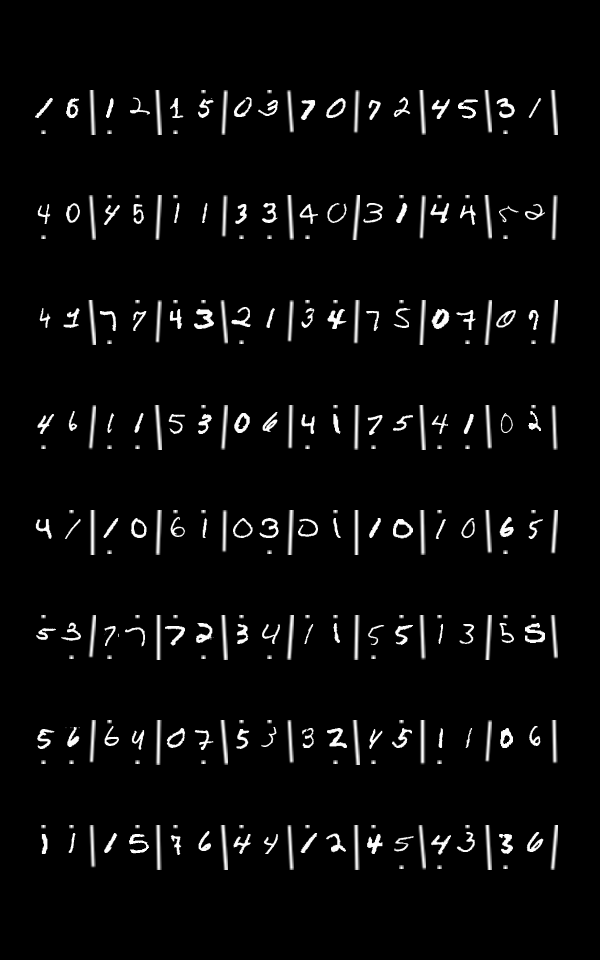 1̣ 6 | 1̣ 2 | 1̣ 5̇ | 0 3̇ | 7 0 | 7 2 | 4 5 | 3̣ 1 |
4̣ 0 | 4̇ 5̇ | 1̇ 1 | 3̣ 3̣ | 4̣ 0 | 3 1̇ | 4̇ 4̇ | 5̣ 2 |
4 1 | 7̣ 7̇ | 4̇ 3 | 2̣ 1 | 3̇ 4̇ | 7 5̇ | 0 7̣ | 0 7̣ |
4̣ 6 | 1̣ 1̣ | 5 3̇ | 0 6 | 4̣ 1̇ | 7̣ 5 | 4̣ 1̣ | 0 2̇ |
4 1̇ | 1̣ 0 | 6̇ 1̇ | 0 3̣ | 0 1̇ | 1 0 | 1̇ 0 | 6̣ 5̇ |
5̇ 3̣ | 7̣ 7̇ | 7̇ 2̣ | 3̇ 4̣ | 1̇ 1̇ | 5̣ 5̇ | 1̇ 3 | 5̇ 5̇ |
5̣ 6̣ | 6 4̇ | 0 7̣ | 5̇ 3̇ | 3 2̣ | 4̣ 5̇ | 1̣ 1 | 0̣ 6 |
1̇ 1̇ | 1 5 | 7̇ 6 | 4̇ 4 | 1̇ 2 | 4̇ 5̣ | 4̣ 3̇ | 3̣ 6 |